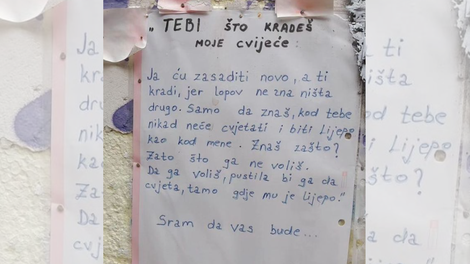 „TEBI ŠTO KRADEŠ
MOJE CVIJEĆE:
Ja ću zasaditi novo, a ti
kradi, jer lopov ne zna ništa
drugo. Samo da znaš, kod tebe
nikad neće cvjetati i biti lijepo
kao kod mene. Znaš zašto?
Zato što ga ne voliš.
Da ga voliš, pustila bi ga da
cvjeta, tamo gdje mu je lijepo."
Sram da vas bude...